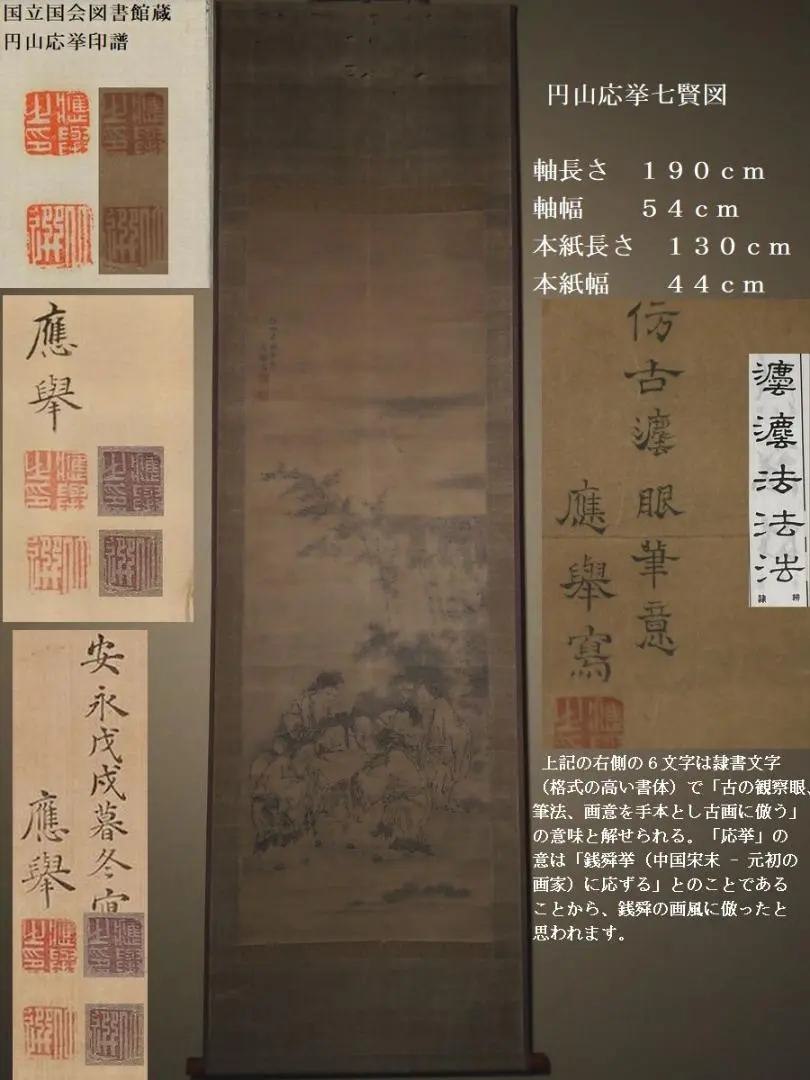 国立国会図書館蔵
円山応挙印譜
應舉
安永戊戌暮冬寫
應舉
円山応挙七賢図
軸長さ　１９０ｃｍ
軸幅　　５４ｃｍ
本紙長さ　１３０ｃｍ
本紙幅　　４４ｃｍ
仿古灋眼筆意
應舉寫
灋灋法法法
隷辨
上記の右側の６文字は隷書文字
（格式の高い書体）で「古の観察眼、
筆法、画意を手本とし古画に倣う」
の意味と解せられる。「応挙」の
意は「銭舜挙（中国宋末 － 元初の
画家）に応ずる」とのことである
ことから、銭舜の画風に倣ったと
思われます。